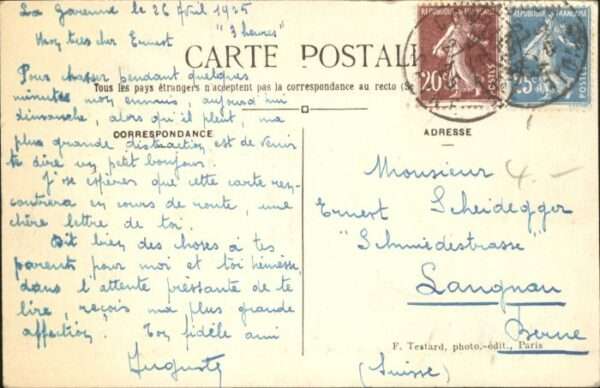 La Garenne le 26 Avril 1925
"3 heures"
Mon très cher Ernest
CARTE POSTALE
Tous les pays étrangers n'acceptent pas la correspondance au recto (Se
CORRESPONDANCE
Pour chasser pendant quelques
minutes mon ennuis, aujourd'hui
dimanche, alors qu'il pleut, ma
plus grande distraction est de venir
te dire un petit bonjour.
J'espère que cette carte ren-
contrera en cours de route, une
chère lettre de toi.
Dit bien des choses à tes
parents pour moi et toi
dans l'attente pressante de te
lire, reçois ma plus grande
affection. Ton fidèle ami
Auguste
ADRESSE
Monsieur
Ernest Scheidegger
"Schmiedestrasse"
Langnau
Berne
(Suisse)
F. Testard, photo.-édit., Paris
4.-
RÉPUBLIQUE FRANÇAISE
20c
POSTES
RÉPUBLIQUE FRANÇAISE
25c
POSTES